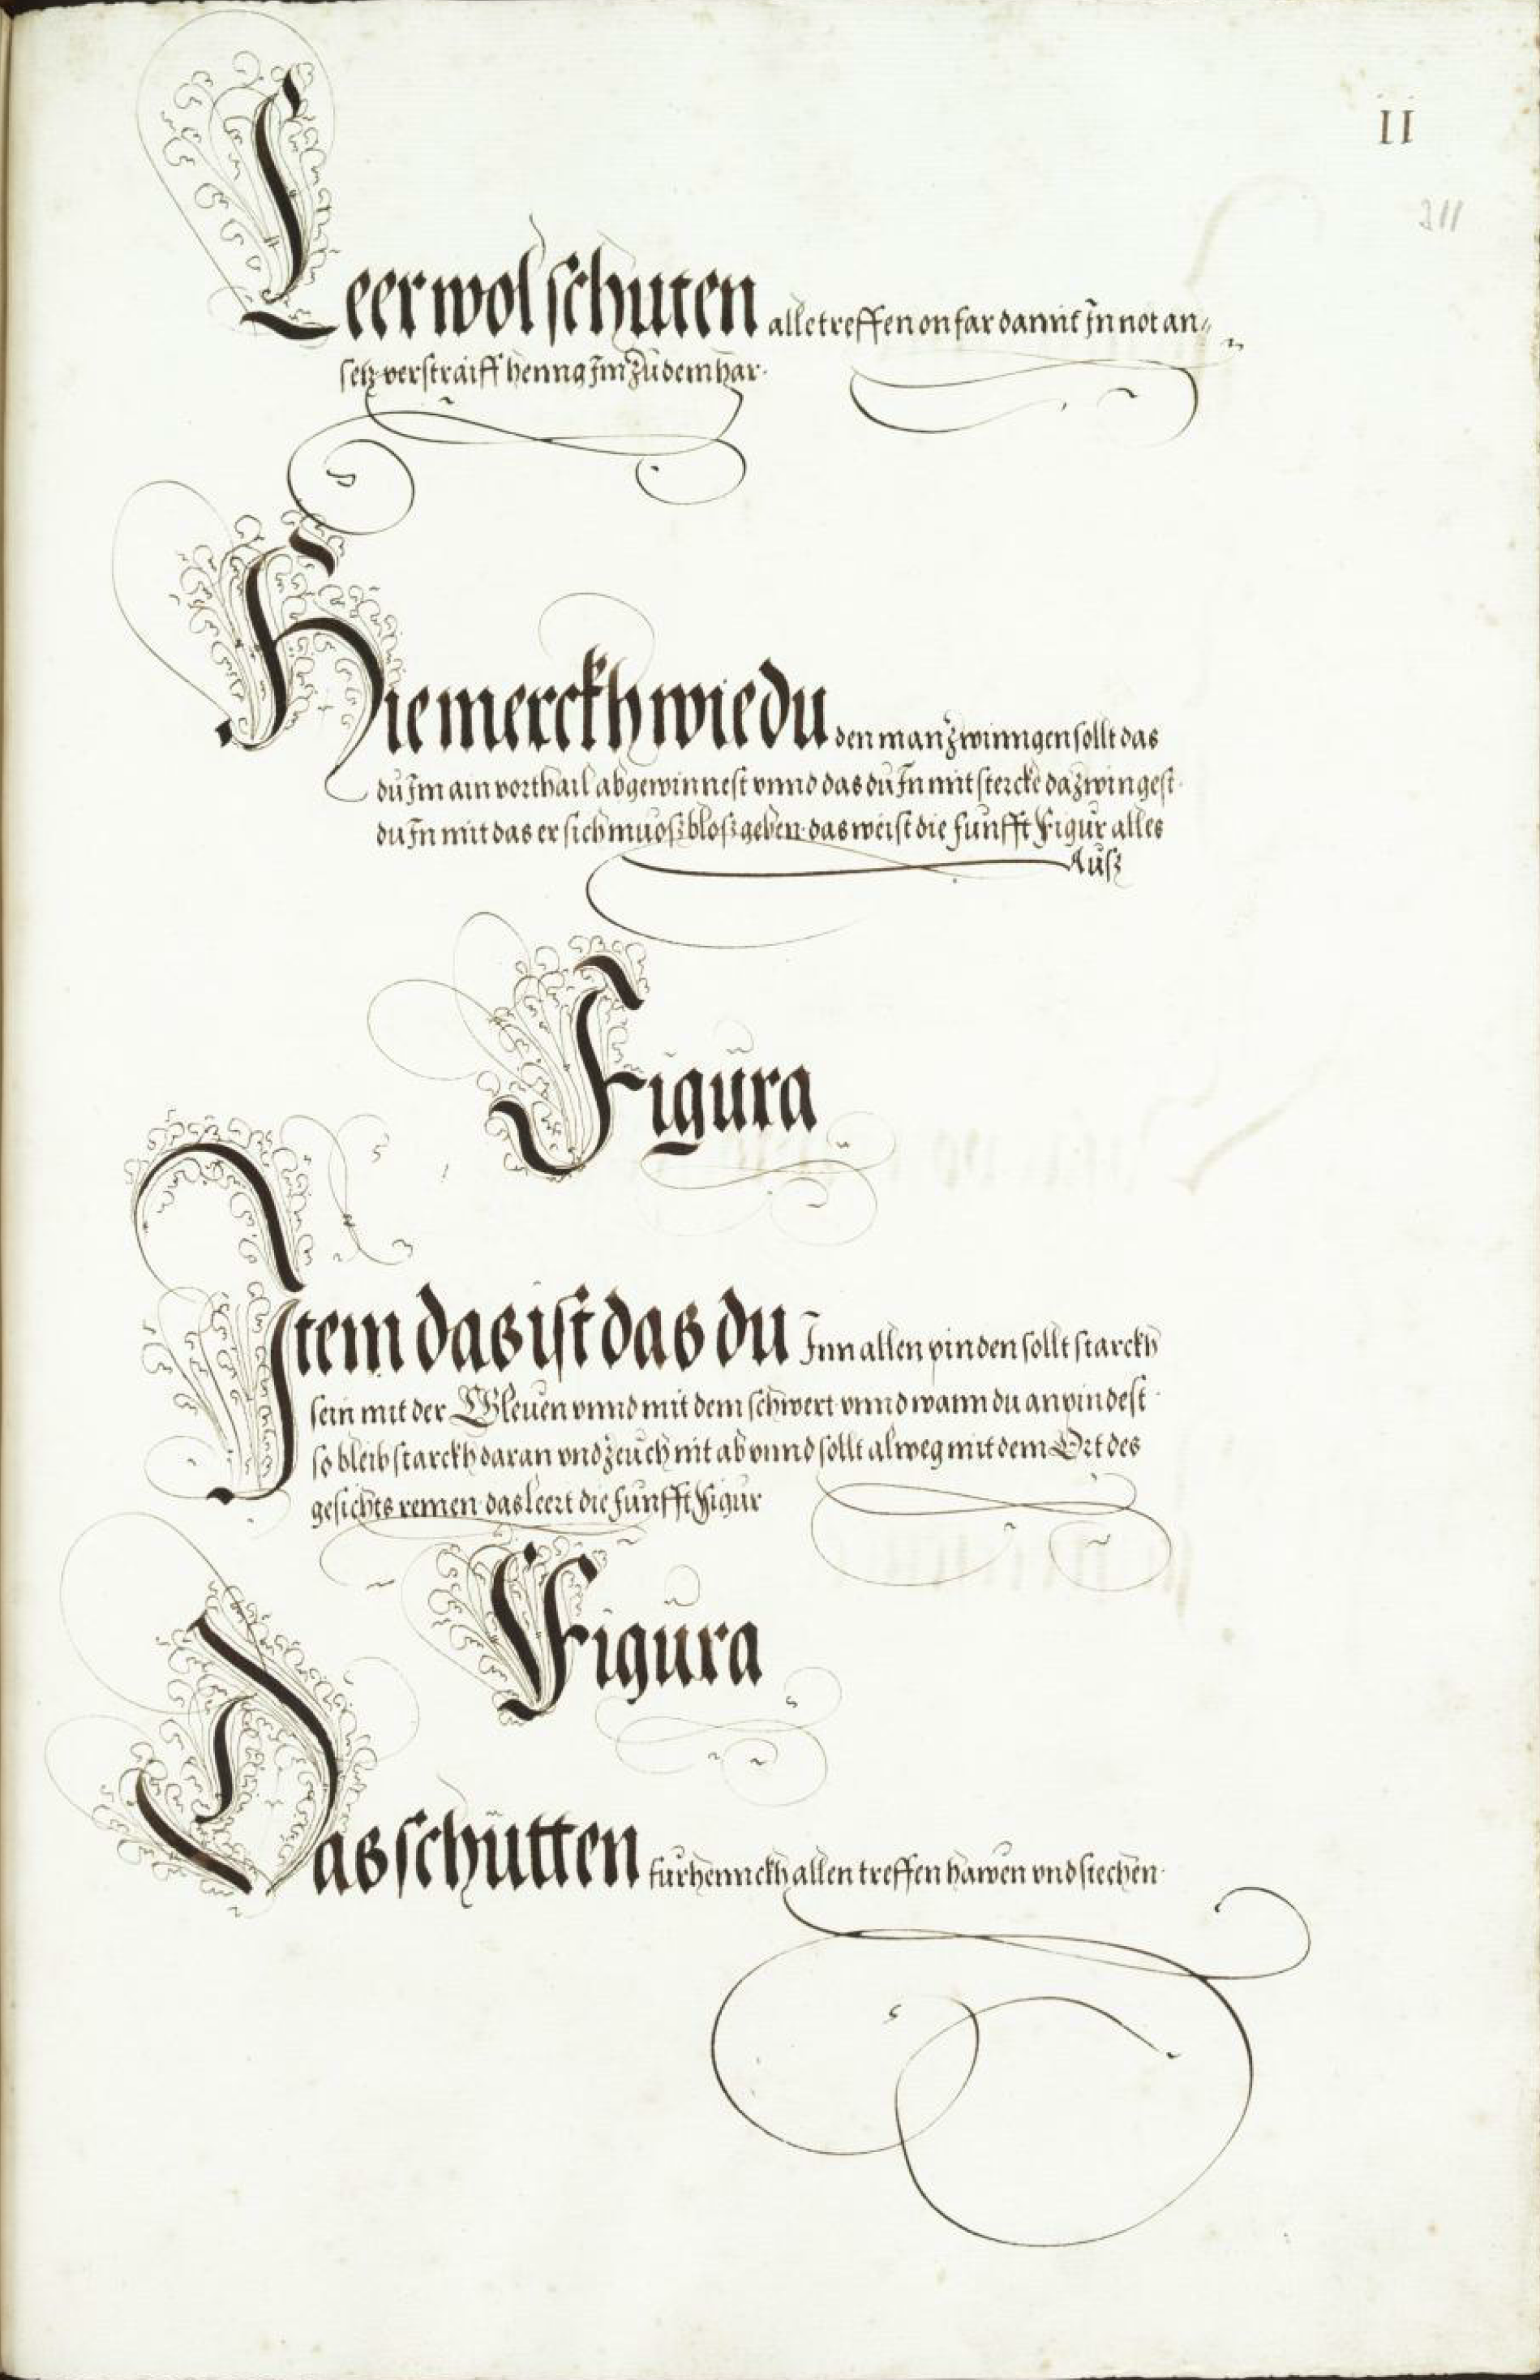 II
211
Leer wol schuten alle treffen on far damit Jn not an-
setz verstraiff henng Jm zu dem har.
Hie merckh wie du den man zwinngen sollt das
du Jm ain vorthail abgewinnest vnnd das du Jn mit stercke da zwingest.
du Jn mit das er sich muosz blosz geben. das weist die funfft Figur alles
Ausz
Figura
Jtem das ist das du Jnn allen pinden sollt starckh
sein mit der Gleuen vnnd mit dem schwert vnnd wann du anpindest.
so bleib starckh daran vnd zeuch nit ab vnnd sollt alweg mit dem Ort des
gesichts remen. das leert die funfft Figur
Figura
Das schütten fürhennckh allen treffen hawen vnd stechen.